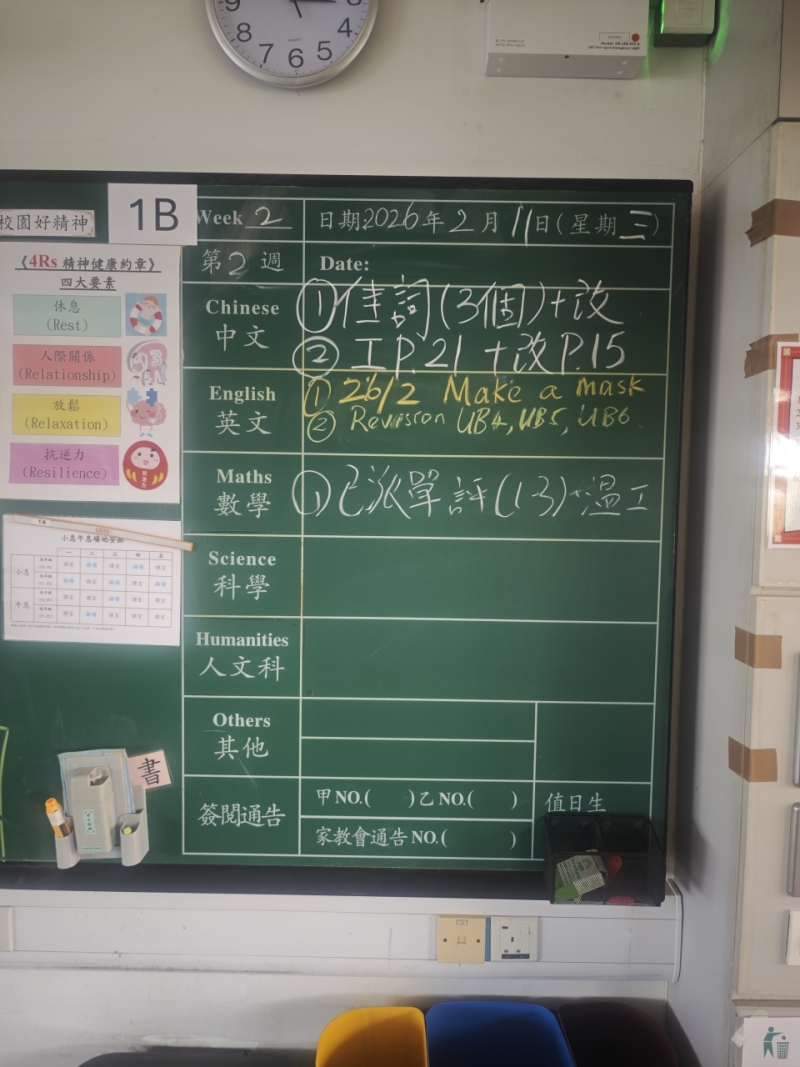 9 3
8 4
7 6 5
校園好精神
1B
Week 2
日期2026年2月11日(星期三)
第2週
Date:
《4Rs 精神健康約章》
四大要素
休息
(Rest)
人際關係
(Relationship)
放鬆
(Relaxation)
抗逆力
(Resilience)
Chinese
中文
① 佳詞(3個)+改
② 工P.21 +改P.15
English
英文
① 26/2 Make a mask
② Revision UB4, UB5, UB6
Maths
數學
① 已派單評(1-3)+溫工
小息午息場地安排
一 二 三 四 五
小息
午息
Science
科學
Humanities
人文科
Others
其他
書
簽閱通告
甲NO.( )乙NO.( )
值日生
家教會通告NO.( )